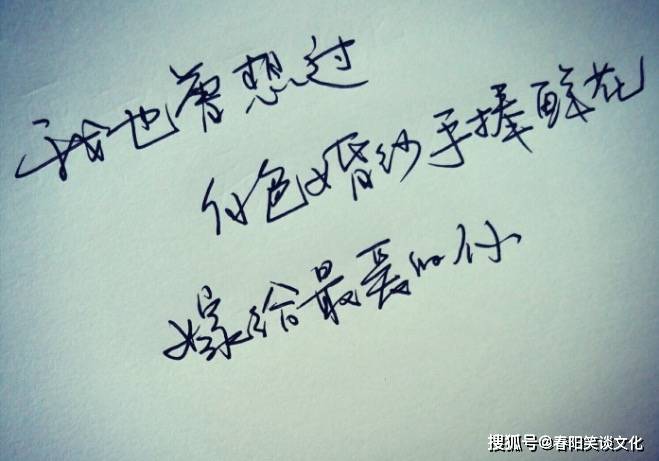 我也曾想过
白色婚纱手捧鲜花
嫁给最爱的你
搜狐号@春阳笑谈文化